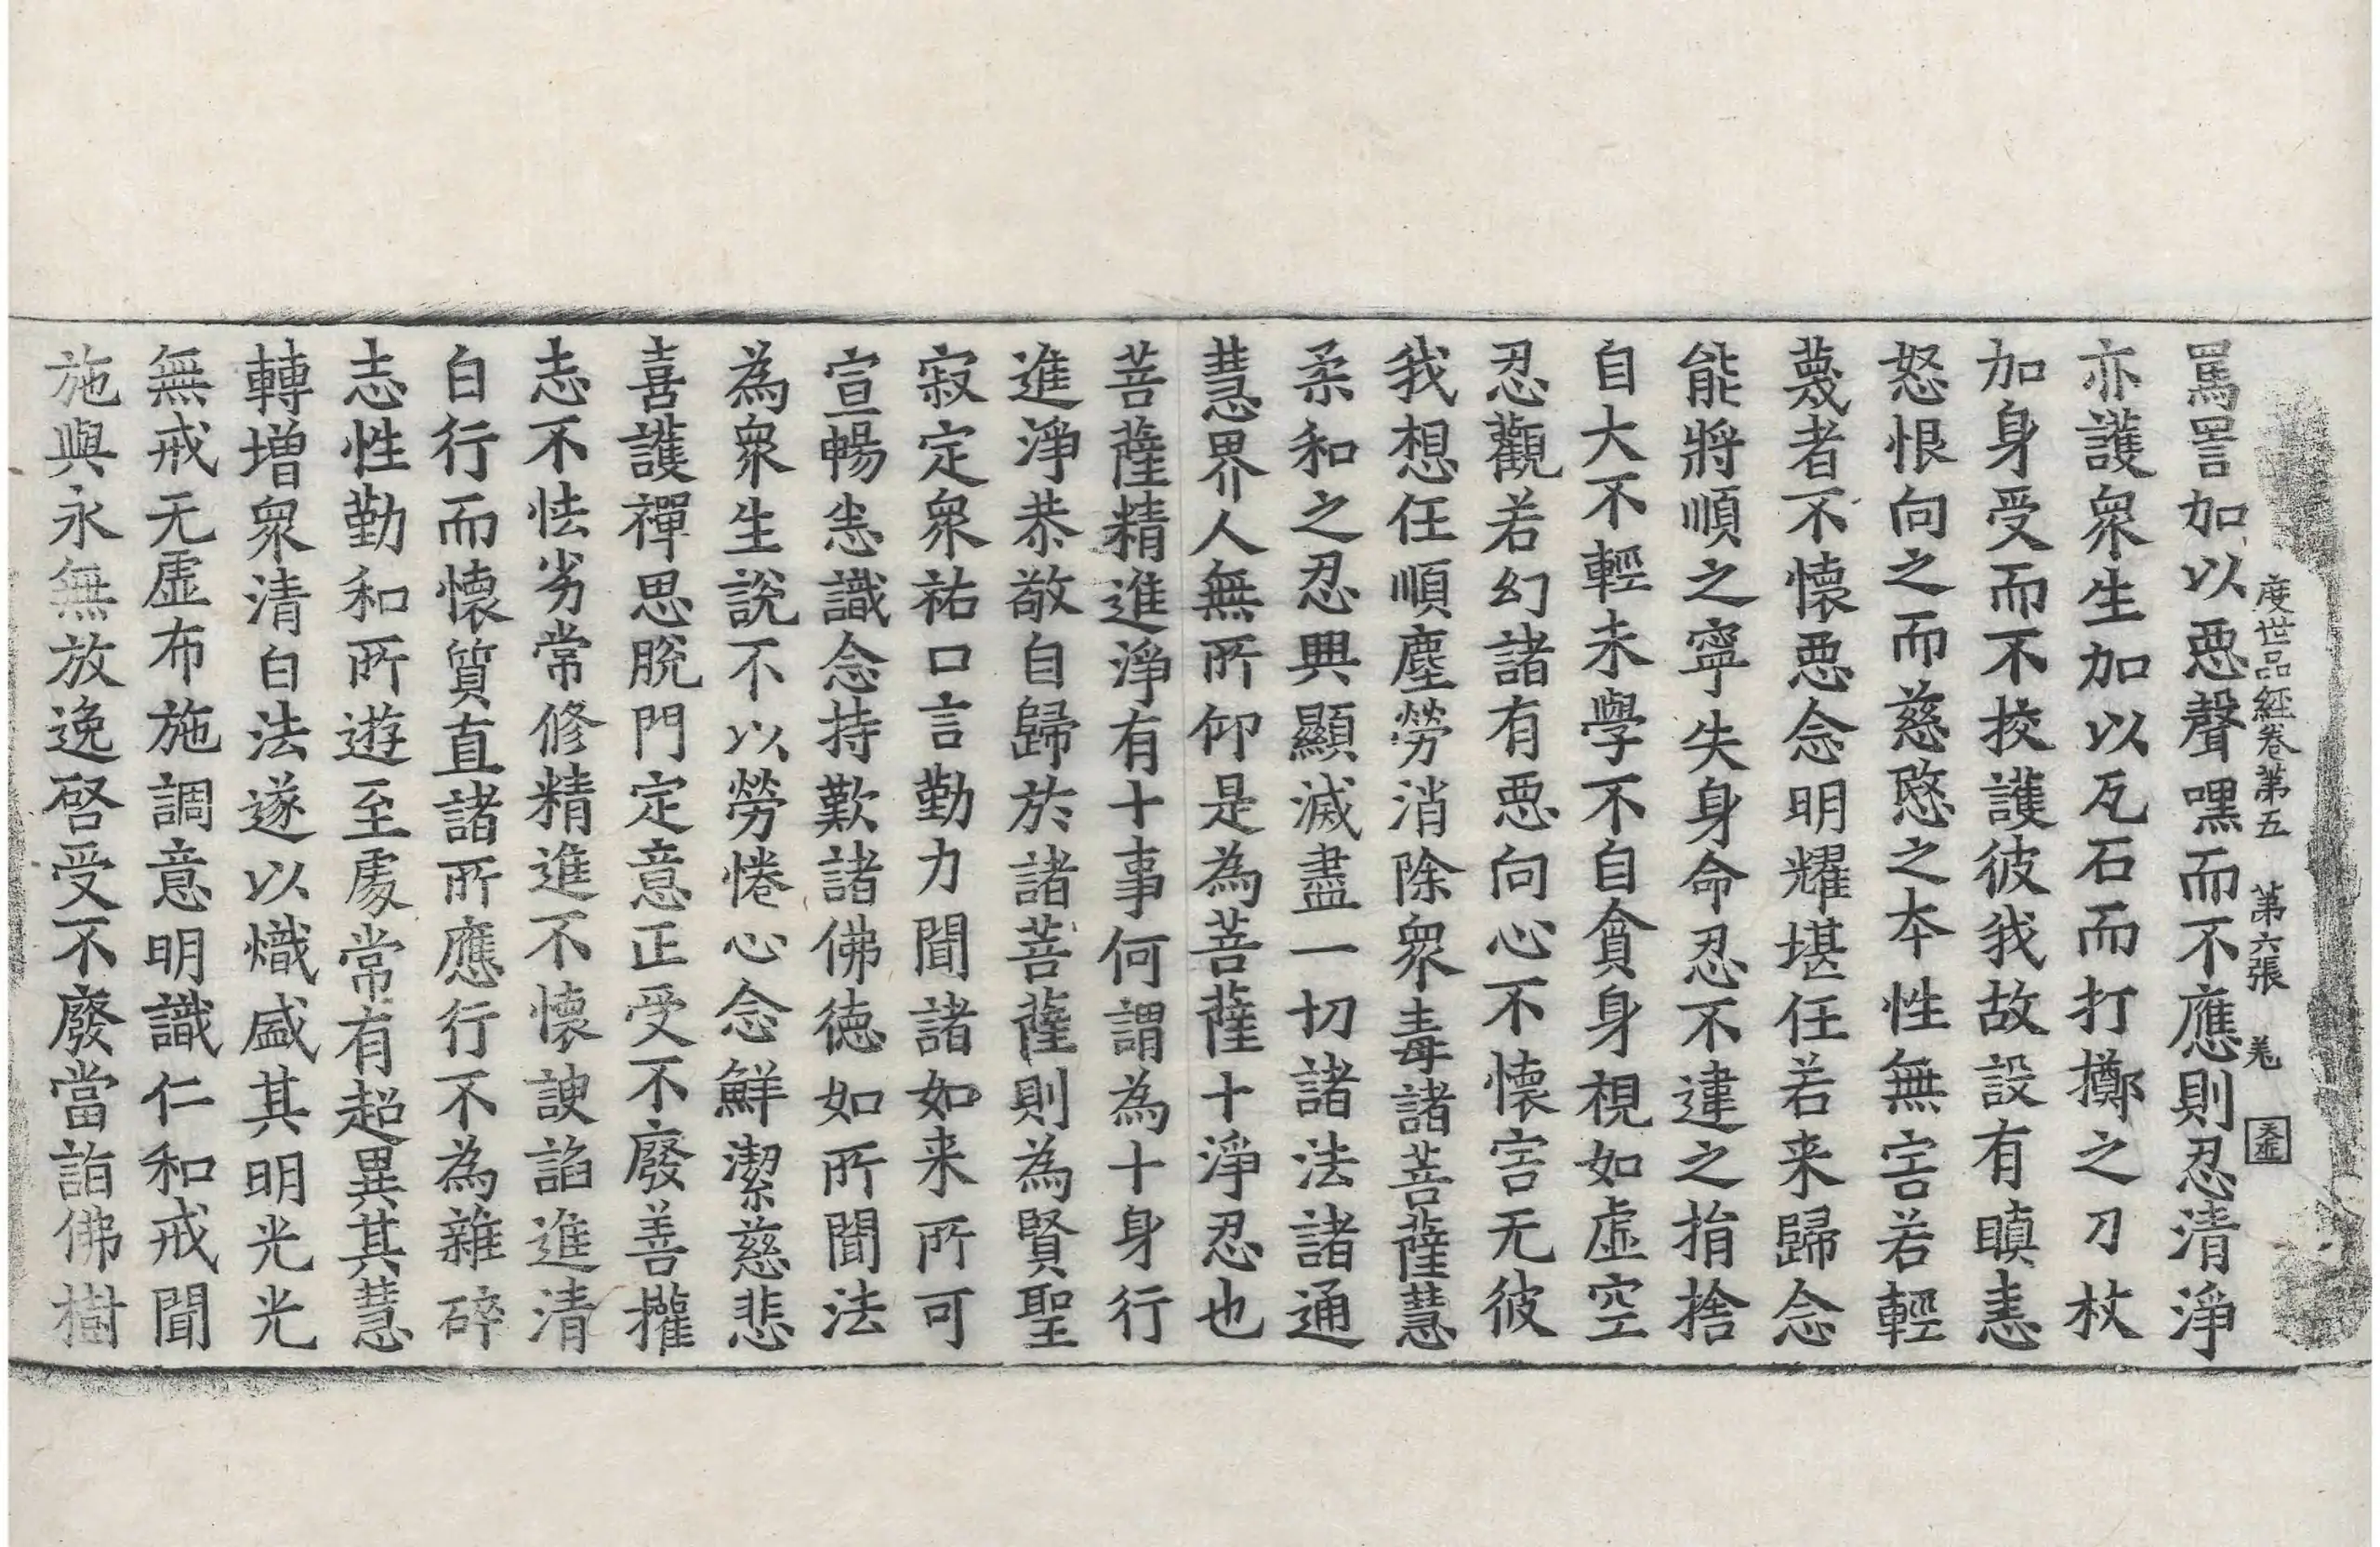 罵詈加以惡聲嘿而不應則忍清淨
度世品經卷第五　第六張　羌
亦護衆生加以瓦石而打擲之刀杖
加身受而不挍護彼我故設有瞋恚
怒恨向之而慈愍之本性無害若輕
蔑者不懷惡念明耀堪任若来歸念
能將順之寧失身命忍不違之捐捨
自大不輕未學不自貪身視如虛空
忍觀若幻諸有惡向心不懷害无彼
我想任順塵勞消除衆毒諸菩薩慧
柔和之忍興顯滅盡一切諸法諸通
慧界人無所仰是為菩薩十淨忍也
菩薩精進淨有十事何謂為十身行
進淨恭敬自歸於諸菩薩則為賢聖
寂定衆祐口言勤力聞諸如来所可
宣暢悉識念持歎諸佛德如所聞法
為衆生說不以勞惓心念鮮潔慈悲
喜護禪思脫門定意正受不廢善權
志不怯劣常修精進不懷諛諂進清
白行而懷質直諸所應行不為雜碎
志性勤和所遊至處常有超異其慧
轉增衆清白法遂以熾盛其明光光
無戒无虛布施調意明識仁和戒聞
施與永無放逸啓受不廢當詣佛樹